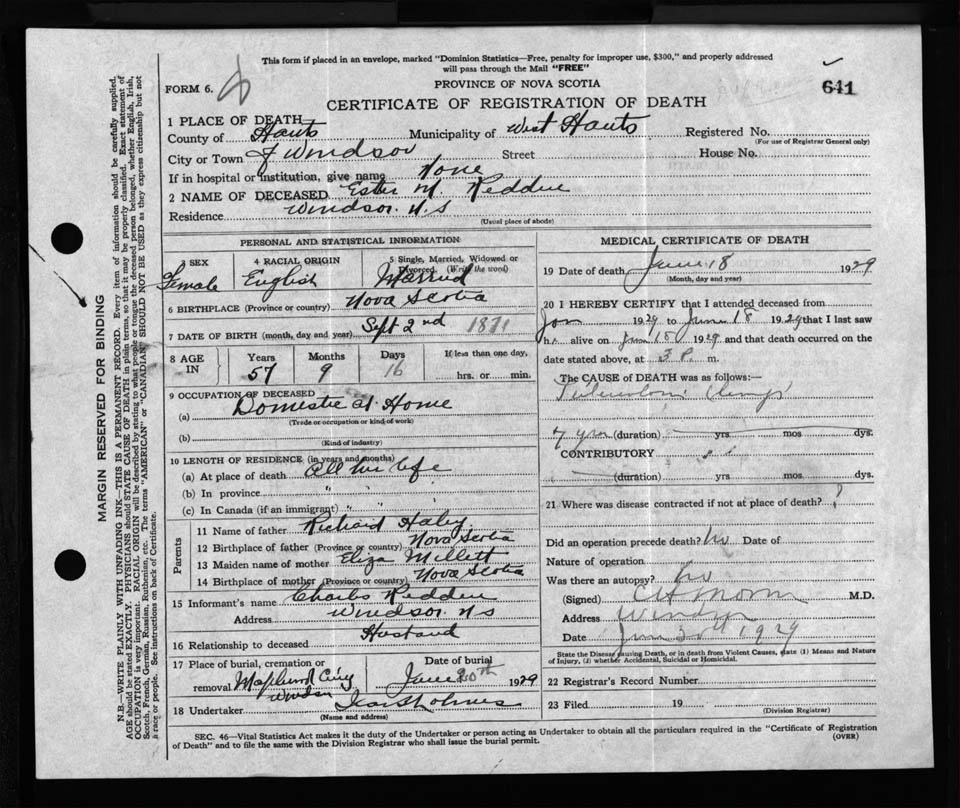 This form if placed in an envelope, marked "Dominion Statistics—Free, penalty for improper use, $300," and properly addressed
will pass through the Mail "FREE"
FORM 6.
PROVINCE OF NOVA SCOTIA
641
CERTIFICATE OF REGISTRATION OF DEATH
1 PLACE OF DEATH
County of Hants Municipality of West Hants Registered No.
(For use of Registrar General only)
City or Town of Windsor Street House No.
If in hospital or institution, give name None
2 NAME OF DECEASED Ester M. Redden
Residence Windsor. N.S
(Usual place of abode)
PERSONAL AND STATISTICAL INFORMATION
3 SEX 4 RACIAL ORIGIN 5 Single, Married, Widowed or
Divorced (Write the word)
Female English Married
6 BIRTHPLACE (Province or country) Nova Scotia
7 DATE OF BIRTH (month, day and year) Sept 2nd 1871
8 AGE IN Years Months Days If less than one day,
57 9 16 hrs. or min.
9 OCCUPATION OF DECEASED
(a) Domestic at Home
(Trade or occupation or kind of work)
(b)
(Kind of industry)
10 LENGTH OF RESIDENCE (in years and months)
(a) At place of death All her life
(b) In province " "
(c) In Canada (if an immigrant) " "
Parents
11 Name of father Richard Haley
12 Birthplace of father (Province or country) Nova Scotia
13 Maiden name of mother Eliza Millett
14 Birthplace of mother (Province or country) Nova Scotia
15 Informant's name Charles Redden
Address Windsor. N S
16 Relationship to deceased Husband
17 Place of burial, cremation or Date of burial
removal Maplewood Windsor June 20th 1929
18 Undertaker
(Name and address)
MEDICAL CERTIFICATE OF DEATH
19 Date of death June 18 1929
(Month, day and year)
20 I HEREBY CERTIFY that I attended deceased from
Jan 1929 to June 18 1929 that I last saw
h alive on June 1929 and that death occurred on the
date stated above, at 3 P. m.
The CAUSE OF DEATH was as follows:—
Tuberculosis (lungs)
7 yrs (duration) yrs mos dys.
CONTRIBUTORY
(duration) yrs mos dys.
21 Where was disease contracted if not at place of death? ?
Did an operation precede death? No Date of
Nature of operation
Was there an autopsy? No
(Signed) M.D.
Address Windsor
Date June 1929
State the Disease causing Death, or in death from Violent Causes, state (1) Means and Nature
of Injury, (2) whether Accidental, Suicidal or Homicidal.
22 Registrar's Record Number
23 Filed 19
(Division Registrar)
SEC. 46—Vital Statistics Act makes it the duty of the Undertaker or person acting as Undertaker to obtain all the particulars required in the "Certificate of Registration
of Death" and to file the same with the Division Registrar who shall issue the burial permit.
(OVER)
MARGIN RESERVED FOR BINDING
N.B.—WRITE PLAINLY WITH UNFADING INK—THIS IS A PERMANENT RECORD. Every item of information should be carefully supplied.
AGE should be stated EXACTLY. PHYSICIANS should STATE CAUSE OF DEATH in plain terms, so that it may be properly classified. Exact statement of
OCCUPATION is very important. RACIAL ORIGIN will be described by stating to what people or tongue the deceased person belonged, whether English, Irish,
Scotch, French, German, Russian, Ruthenian, etc. The terms "AMERICAN" or "CANADIAN" SHOULD NOT BE USED as they express citizenship but not
a race or people. See instructions on back of Certificate.